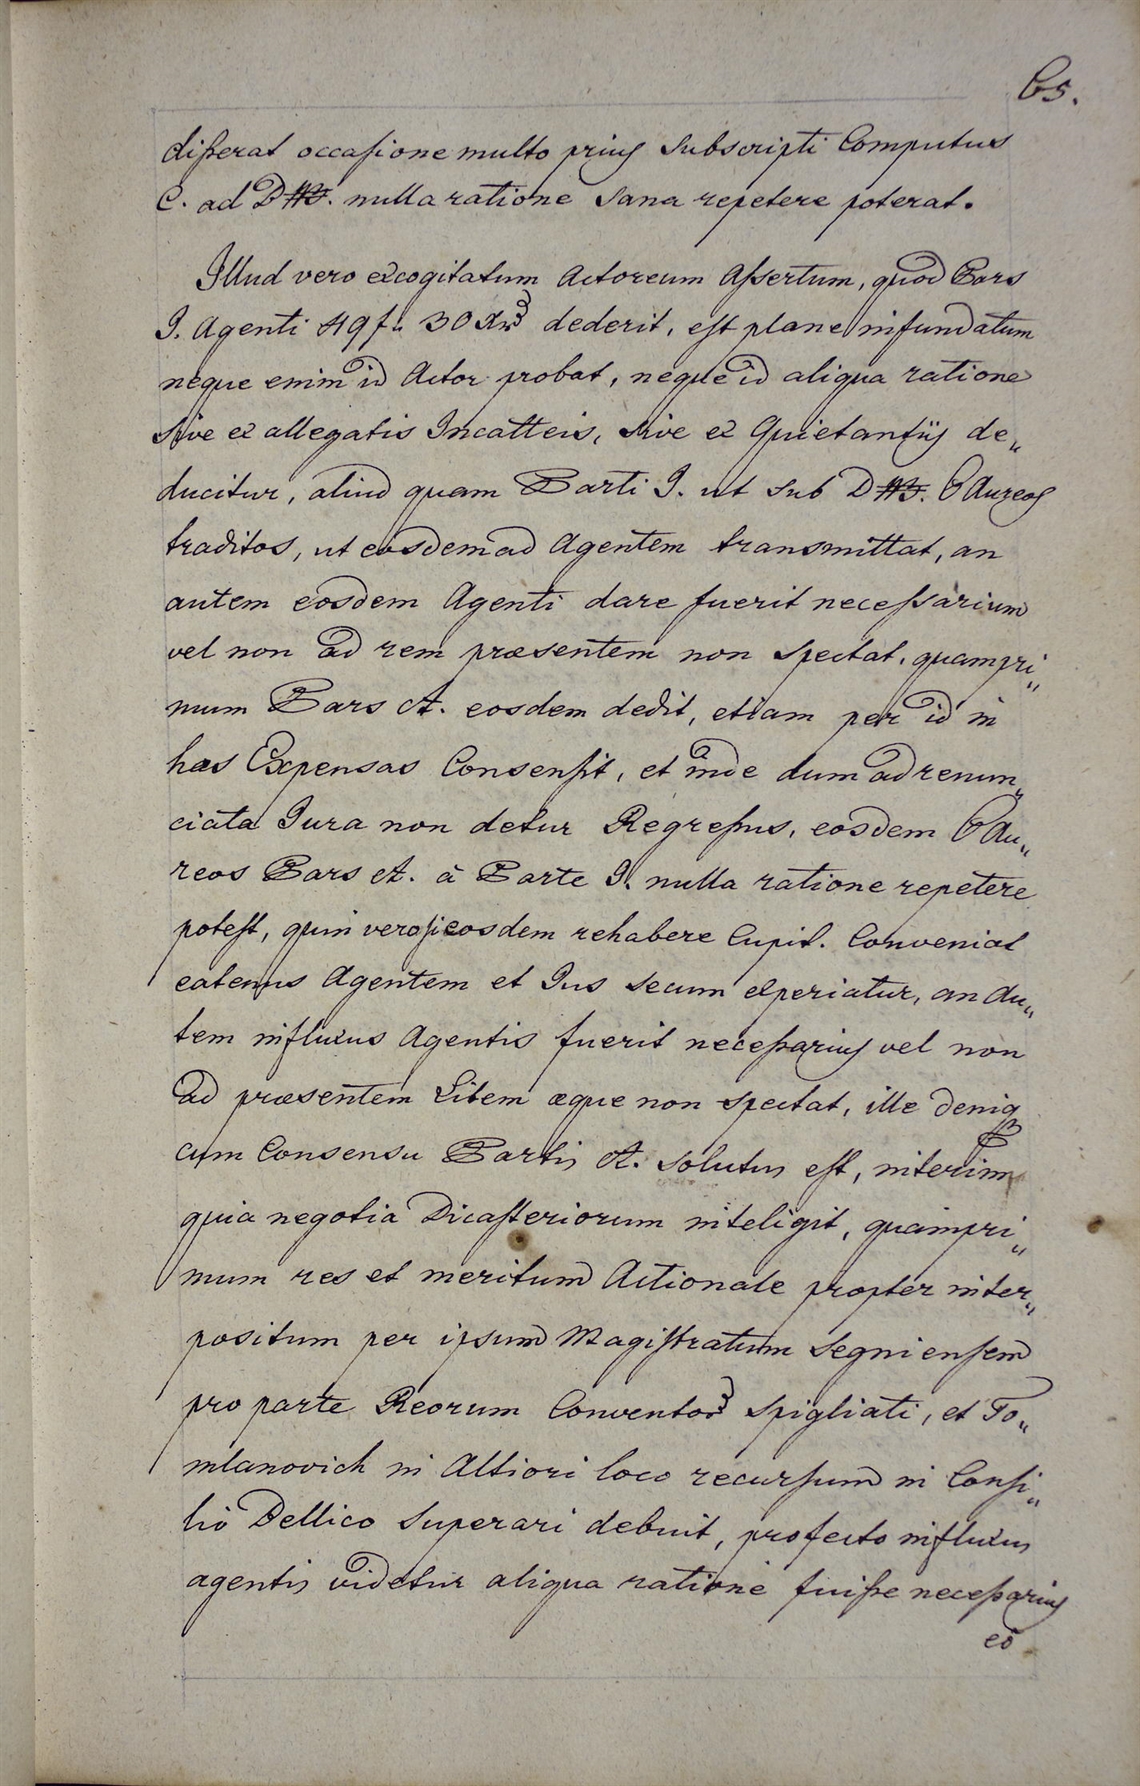 65.
disserat occasione multo prius Subscripti Computus
C. ad D##. nulla ratione Sana repetere poterat.
Illud vero excogitatum Actoreum Assertum, quod Pars
I. Agenti 49 f. 30 Xr dederit, est plane infundatum
neque enim id Actor probat, neque id aliqua ratione
sive ex allegatis Incatteis, sive ex Quietantijs de„
ducitur, aliud quam Parti I. ut sub D##. 6 Aureos
traditos, ut eosdem ad Agentem transmittat, an
autem eosdem Agenti dare fuerit necessarium
vel non ad rem præsentem non Spectat. quampri„
mum Pars A. eosdem dedit, etiam per id in
has Expensas Consensit, et inde dum ad renun„
ciata Jura non detur Regressus, eosdem 6 Au„
reos Pars A. à Parte I. nulla ratione repetere
potest, quin vero si eosdem rehabere Cupit. Conveniat
eatenus Agentem et Jus secum experiatur, an Au„
tem influxus Agentis fuerit necessarius vel non
ad præsentem Litem æque non spectat, ille deniq
cum Consensu Partis A. solutus est, interim
quia negotia Dicasteriorum inteligit, quampri„
mum res et meritum Actionale propter inter„
positum per ipsum Magistratum Segniensem
pro parte Reorum Conventor Spigliati, et To„
mlanovich in Altiori loco recursum in Consi„
lio Bellico Superari debuit, profecto influxus
agentis videtur aliqua ratione fuisse necessarius
eò